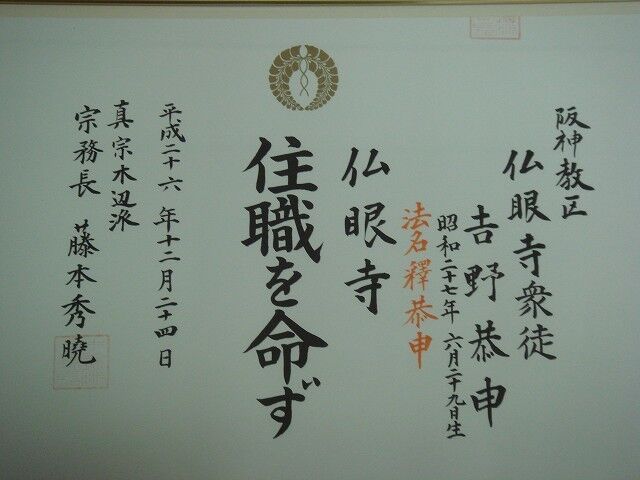 阪神教区
仏眼寺衆徒
吉野恭申
昭和二十七年 六月二十九日生
法名釋恭申
仏眼寺
住職を命ず
平成二十六年十二月二十四日
真宗木辺派
宗務長 藤本秀曉